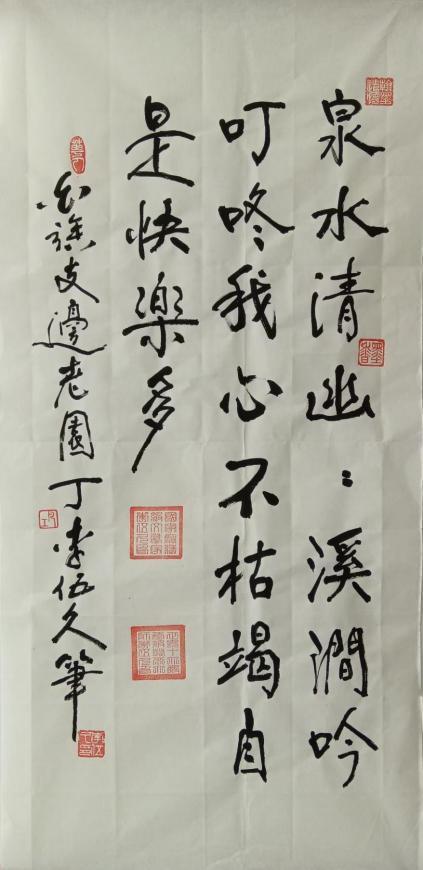 泉水清幽：溪澗吟
叮咚我心不枯竭自
是快樂多
白族支邊老園丁李伍久筆